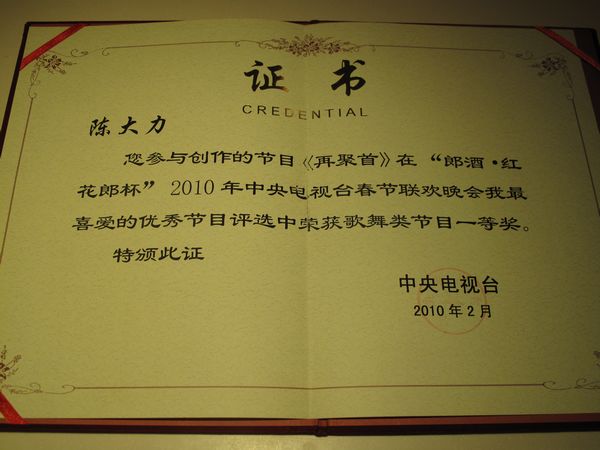 证书
CREDENTIAL
陈大力
您参与创作的节目《再聚首》在“郎酒·红
花郎杯”2010年中央电视台春节联欢晚会我最
喜爱的优秀节目评选中荣获歌舞类节目一等奖。
特颁此证
中央电视台
2010年2月